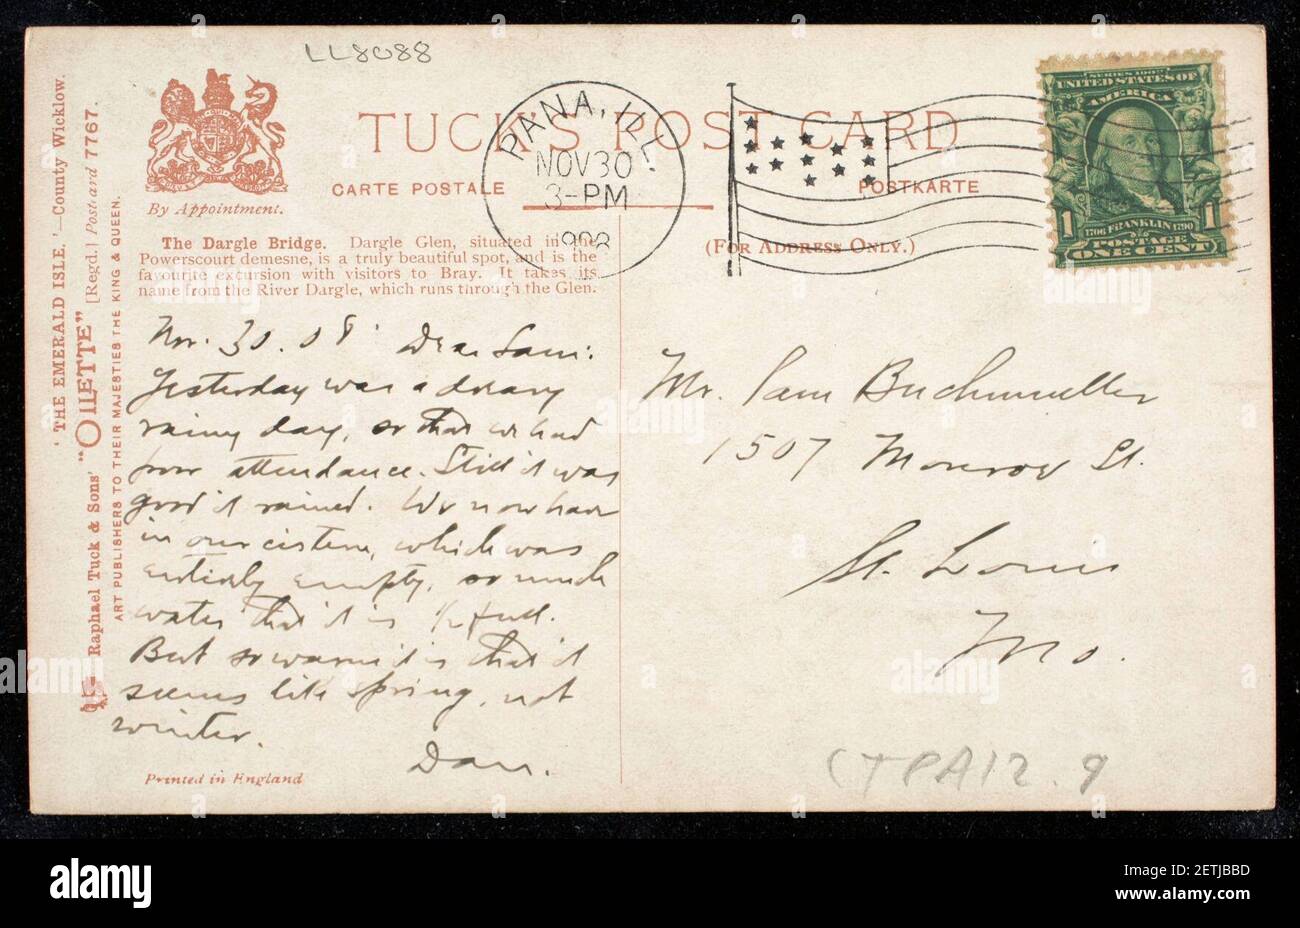 LL8088
TUCK'S POST CARD
CARTE POSTALE
POSTKARTE
(FOR ADDRESS ONLY.)
By Appointment.
PANA, ILL.
NOV 30
3-PM
1908
SERIES 1902
UNITED STATES OF
AMERICA
1706 FRANKLIN 1790
1 1
POSTAGE
ONE CENT
' THE EMERALD ISLE. '—County Wicklow.
Raphael Tuck & Sons' "OILETTE" [Regd.] Postcard 7767.
ART PUBLISHERS TO THEIR MAJESTIES THE KING & QUEEN.
The Dargle Bridge. Dargle Glen, situated in the
Powerscourt demesne, is a truly beautiful spot, and is the
favourite excursion with visitors to Bray. It takes its
name from the River Dargle, which runs through the Glen.
Nov. 30. 08 Dear Sam:
Yesterday was a dreary
rainy day, so that we had
poor attendance. Still it was
good it rained. We now have
in our cistern, which was
entirely empty, so much
water that it is 1/2 full.
But so warm it is that it
seems like spring, not
winter.
Dan.
Mr. Sam Buchmueller
1507 Monroe St.
St. Louis
Mo.
Printed in England
CTPA12.9
alamy
Image ID: 2ETJBBD
www.alamy.com